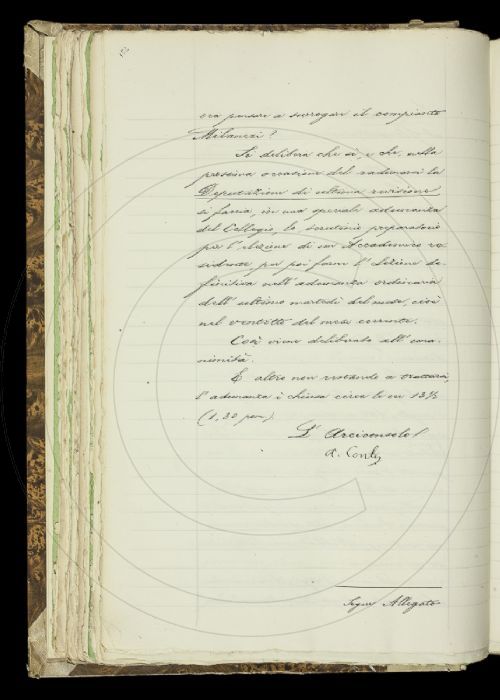 ora pensare a surrogare il compianto
Milanesi?
Si delibera che sì, e che, nella
prossima occasione del radunarsi la
Deputazione di ultima revisione,
si faccia, in una speciale adunanza
del Collegio, lo scrutinio preparatorio
per l'elezione di un Accademico re-
sidente, per poi farne l'elezione de-
finitiva nell'adunanza ordinaria
dell'ultimo martedì del mese, cioè
nel ventotto del mese corrente.
Così viene deliberato all'una-
nimità.
E altro non restando a trattarsi,
l'adunanza è chiusa circa le ore 13½
(1,30 pom.)
L'Arciconsolo
A. Conti
Segue Allegato